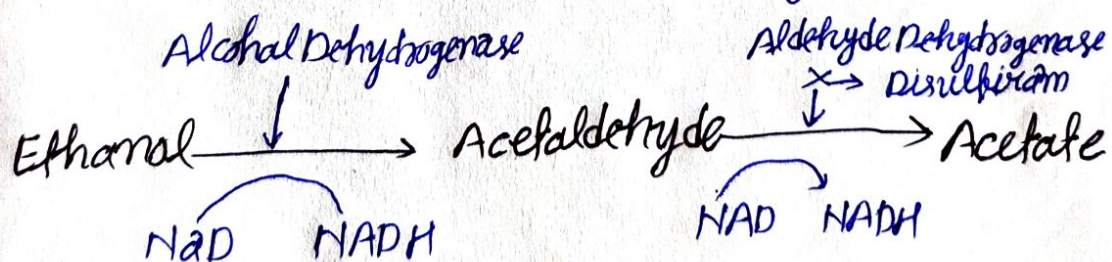 Alcohol Dehydrogenase
Aldehyde Dehydrogenase
Disulfiram
Ethanol Acetaldehyde Acetate
NaD NADH NAD NADH